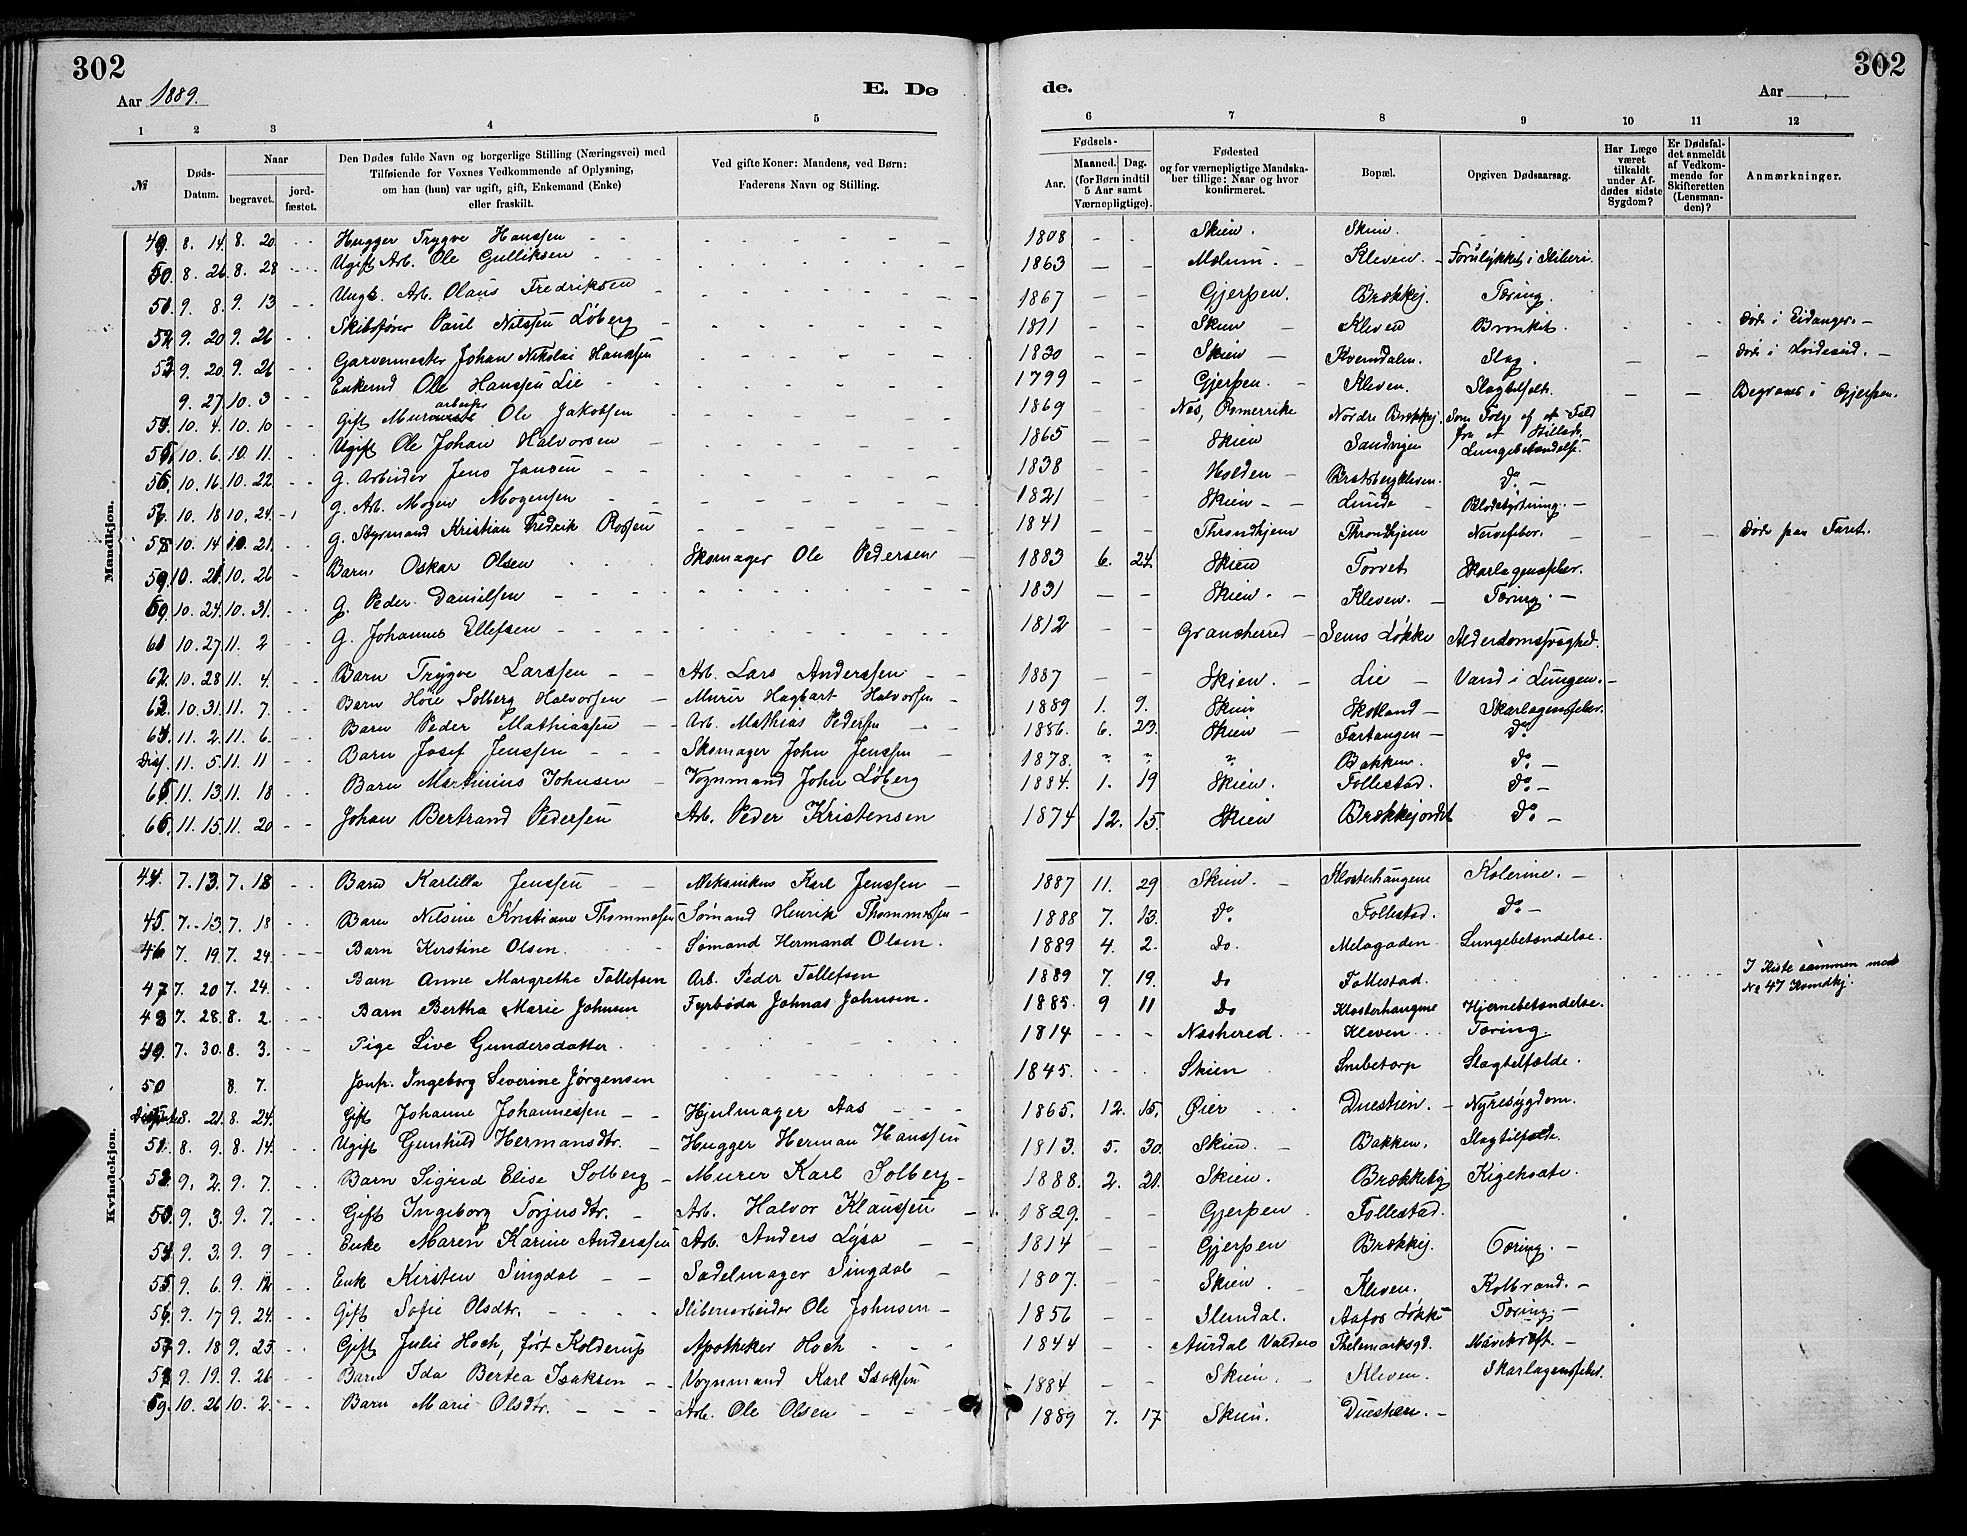 302
302
Aar 1889.
E. Dø
de.
Aar
1 2 3 4 5
6 7 8 9 10 11 12
№
Døds-Datum.
Naar
begravet.
jord-fæstet.
Den Dødes fulde Navn og borgerlige Stilling (Næringsvei) med
Tilføiende for Voxnes Vedkommende af Oplysning,
om han (hun) var ugift, gift, Enkemand (Enke)
eller fraskilt.
Ved gifte Koner: Mandens, ved Børn:
Faderens Navn og Stilling.
Fødsels-
Aar.
Maaned. Dag.
(for Børn indtil
5 Aar samt
Værnepligtige).
Fødested
og for værnepligtige Mandska-
ber tillige: Naar og hvor
konfirmeret.
Bopæl.
Opgiven Dødsaarsag.
Har Læge
været
tilkaldt
under Af-
dødes sidste
Sygdom?
Er Dødsfal-
det anmeldt
af Vedkom-
mende for
Skifteretten
(Lensman-
den)?
Anmærkninger.
Mandkjøn.
49. 8. 14. 8. 20 Hugger Trygve Hanssen 1808 Skien. Skien.
50. 8. 26. 8. 28 Ugift Arb. Ole Gulliksen 1863 Melum Kleven Forulykket i Sliberi.
51. 9. 8. 9. 13 Ungk. Arb. Olaus Fredriksen 1867 Gjerpen. Brækkej. Tæring.
52. 9. 20 9. 26 Skibsfører Paul Nilssen Løberg 1811 Skien Kleven Bronkit. Døde i Eidanger.
53. 9. 20 9. 26 Garvermester Johan Nikolai Hanssen 1830 Skien Kverndalen. Slag. Døde i Hvideseid.
9. 27 10. 3 Enkemd Ole Hanssen Lie 1799 Gjerpen. Kleven. Slagtilfelde. Begraves i Gjerpen.
54. 10. 4. 10. 10 Gift Murarbeider Ole Jakobsen 1869 Nes, Romerrike Nordre Brekkej. Som Følge af et Fald fra et Stillads.
55. 10. 6. 10. 11. Ugift Ole Johan Halvorsen 1865 Skien Sandvigen Lungebetændelse.
56. 10. 16. 10. 22 g. Arbeider Jens Jansen 1838 Holden Bratsbergkleven. Do.
57. 10. 18 10. 24 g. Arb. Mogen Mogensen 1821 Skien Lunde Blodstyrtning.
58. 10. 14 10. 21 g. Styrmand Kristian Fredrik Rossen 1841 Throndhjem Throndhjem Nervefeber. Døde paa Faret.
59. 10. 21. 10. 26 Barn. Oskar Olsen Skomager Ole Pedersen 1883 6. 24. Skien Torvet Skarlagensfeber.
60. 10. 24. 10. 31. g. Peder Danielsen 1831 Skien. Kleven. Tæring.
61. 10. 27 11. 2 g. Johannes Ellefsen 1812 Gransherred Sems Løkke Alderdomssvaghed.
62. 10. 28 11. 4. Barn Trygve Larssen Arb. Lars Anderssen 1887 Skien. Lie Vand i Lungen.
63. 10. 31. 11. 7. Barn Høie Solberg Halvorsen Murer Hagbart Halvorsen 1889 1. 9. Skien Skotland Skarlagensfeber.
64. 11. 2. 11. 6. Barn Peder Mathiassen Arb. Mathias Pedersen 1886. 6. 23. Skien Fartangen Do
Diss. 11. 5. 11. 11 Barn Josef Jenssen Skomager John Jenssen 1878. " " " Bakken. Do.
65. 11. 13. 11. 18 Barn Martinius Johnsen Vognmand John Løberg 1884. 1. 19 Skien. Follestad. Do.
66. 11. 15. 11. 20 Johan Bertrand Pedersen Arb. Peder Kristensen 1874 12. 15. Skien Brækkejordet Do.
Kvindekjøn.
44. 7. 13. 7. 18 Barn Karlilla Jenssen Mekanikus Karl Jenssen 1887 11. 29 Skien. Klosterhaugene Kolerine.
45. 7. 13. 7. 18 Barn Nilsine Kristiane Thommesen Sømand Henrik Thommesen 1888 7. 13. Do. Follestad. Do.
46 7. 19. 7. 24 Barn Kirstine Olsen. Sømand Hermand Olsen. 1889 4. 2. Do. Melagaden Lungebetændelse.
47 7. 20 7. 24. Barn Anne Margrethe Tollefsen Arb. Peder Tollefsen 1889 7. 19. Do Follestad. I Kiste sammen med No 47 Kvindkj.
48 7. 28. 8. 2. Barn Bertha Marie Johnsen Fyrbøder Johnas Johnsen. 1885. 9 11 Do Klosterhaugene Hjernebetændelse.
49. 7. 30. 8. 3. Pige Live Gundersdatter 1814 Næsherred. Kleven Tæring.
50 8. 7. Jomfr. Ingeborg Severine Jørgensen 1845. Skien Snibetorp Slagtilfælde.
8. 21. 8. 24. Gift Johanne Johannessen Hjulmager Aas 1865. 12. 15. Øier Duestien. Nyresygdom.
51. 8. 9. 8. 14. Ugift Gunhild Hermansdtr. Hugger Herman Hanssen 1813. 5. 30. Skien. Bakken. Slagtilfælde.
52. 9. 2. 9. 7. Barn Sigrid Elise Solberg Murer Karl Solberg 1888. 2. 21. Skien. Brækkebg Kighoste.
53. 9. 3. 9. 7. Gift Ingeborg Torjusdtr. Arb. Halvor Klaussen 1829. Gjerpen Follestad.
54. 9. 3. 9. 9 Enke Maren Karine Anderssen Arb. Anders Lysa 1814 Gjerpen Brækkej. Tæring.
55. 9. 6. 9. 12 Enk Kirsten Singdal Sadelmager Singdal 1807. Skien Kleven. Kolbrand.
56. 9. 17 9. 24. Gift Sofie Olsdtr. Sliberiarbeider Ole Johnsen 1856 Slemdal. Aafos Løkke Tæring.
57 9. 18 9. 25 Gift Julie Hoch, født Kolderup Apotheker Hoch 1844 Aurdal Valders Thelemarksgd. Mavekræft.
58 9. 19. 9. 26 Barn Ida Bertea Isaksen Vognmand Karl Isaksen 1884 Skien. Kleven. Skarlagensfeber.
59. 10. 26 10. 2. Barn Marie Olsdtr. Arb. Ole Olsen 1889 7. 17. Skien. Duestien.